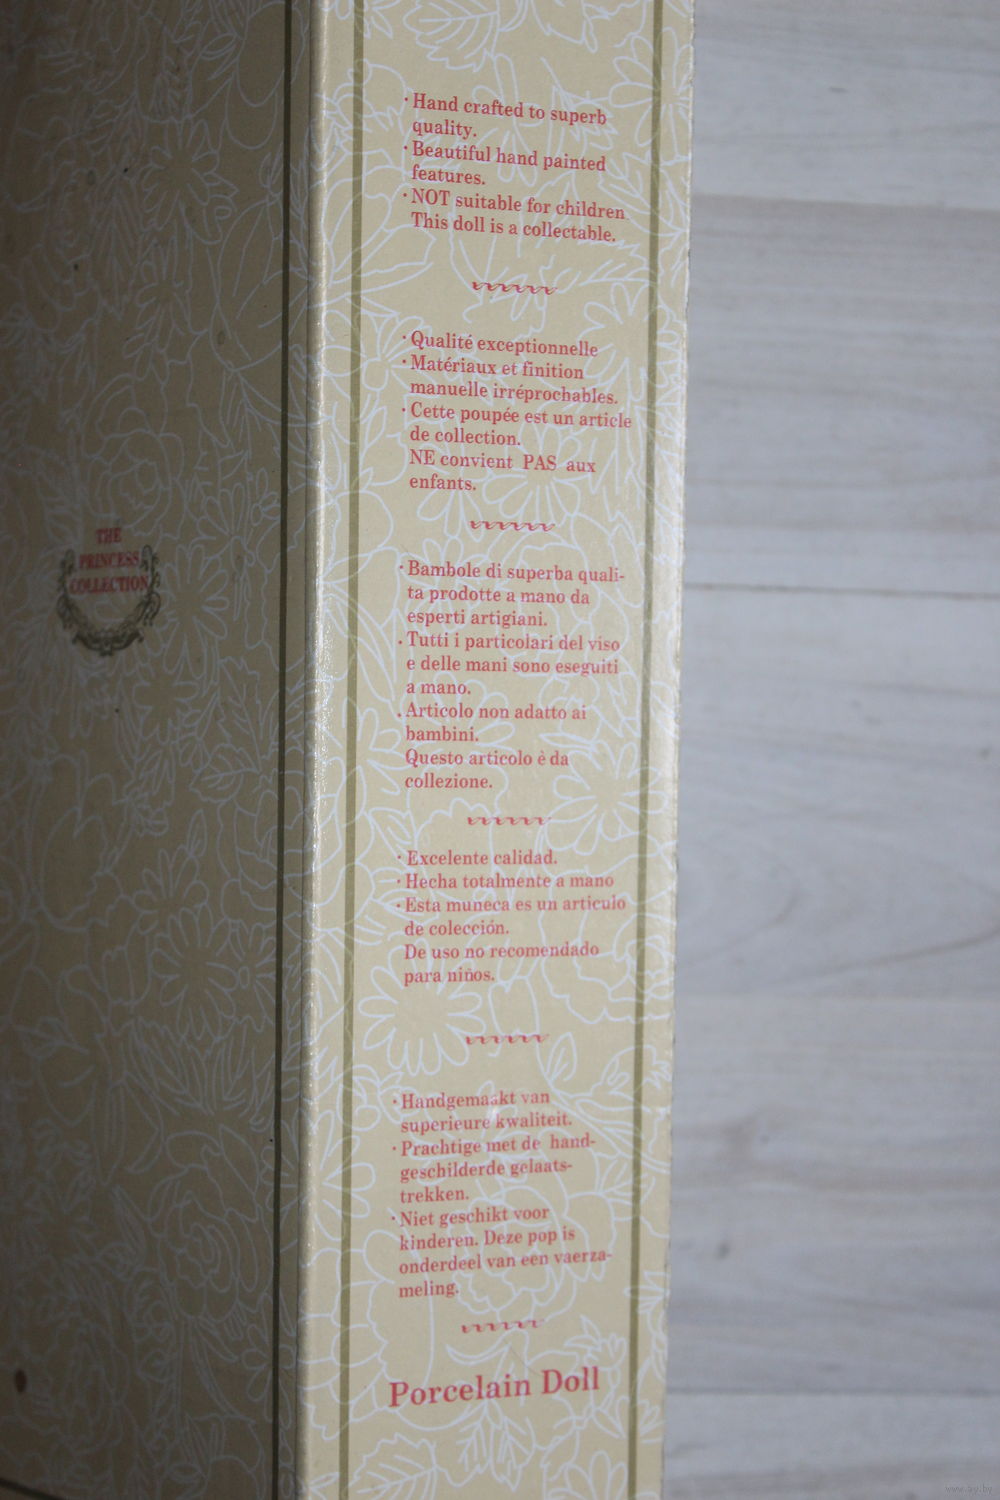 THE
PRINCESS
COLLECTION
· Hand crafted to superb
quality.
· Beautiful hand painted
features.
· NOT suitable for children
This doll is a collectable.
· Qualité exceptionnelle
· Matériaux et finition
manuelle irréprochables.
· Cette poupée est un article
de collection.
NE convient PAS aux
enfants.
· Bambole di superba quali-
ta prodotte a mano da
esperti artigiani.
· Tutti i particolari del viso
e delle mani sono eseguiti
a mano.
· Articolo non adatto ai
bambini.
Questo articolo è da
collezione.
· Excelente calidad.
· Hecha totalmente a mano
· Esta muneca es un articulo
de colección.
De uso no recomendado
para niños.
· Handgemaakt van
superieure kwaliteit.
· Prachtige met de hand-
geschilderde gelaats-
trekken.
· Niet geschikt voor
kinderen. Deze pop is
onderdeel van een vaerza-
meling.
Porcelain Doll
www.ay.by